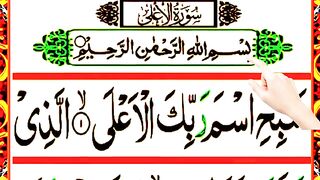 سُورَةُ الْأَعْلَى
بِسْمِ اللهِ الرَّحْمٰنِ الرَّحِيْمِ
سَبِّحِ اسْمَ رَبِّكَ الْاَعْلَى ۙ﴿١﴾ الَّذِیْ